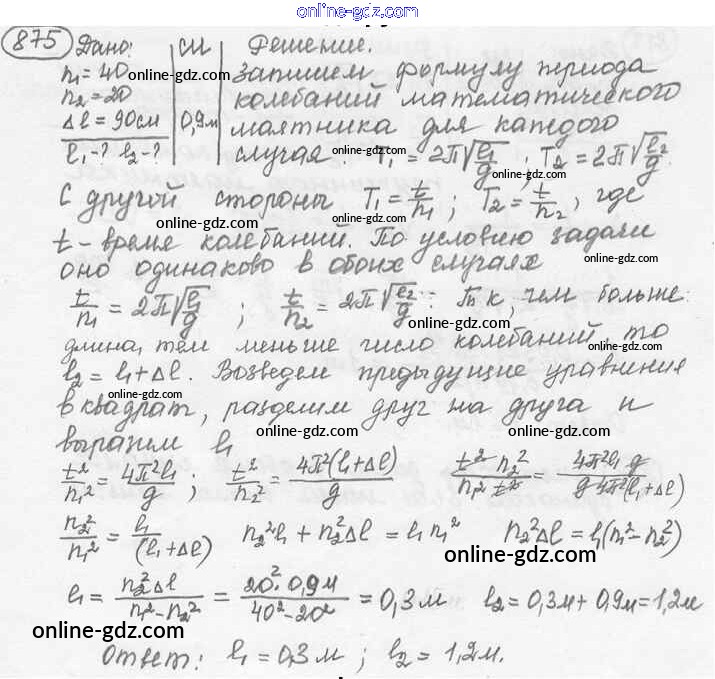 online-gdz.com
875 Дано: СИ Решение.
n₁ = 40 Запишем формулу периода
n₂ = 20 колебаний математического
Δl = 90 см 0,9 м маятника для каждого
l₁ - ? l₂ - ? случая: T₁ = 2π√(l₁/g); T₂ = 2π√(l₂/g).
С другой стороны T₁ = t/n₁; T₂ = t/n₂, где
t – время колебаний. По условию задачи
оно одинаково в обоих случаях
t/n₁ = 2π√(l/g); t/n₂ = 2π√(l₂/g). Т.к, чем больше
длина, тем меньше число колебаний, то
l₂ = l₁ + Δl. Возведем предыдущие уравнения
в квадрат, разделим друг на друга и
выразим l₁
t²/n₁² = 4π²l₁/g; t²/n₂² = 4π²(l₁+Δl)/g t² n₂²/n₁² t² = 4π²l₁ g/g 4π²(l₁+Δl)
n₂²/n₁² = l₁/(l₁+Δl) n₂²l₁ + n₂²Δl = l₁n₁² n₂²Δl = l₁(n₁² - n₂²)
l₁ = n₂²Δl/n₁² - n₂² = 20²·0,9м/40² - 20² = 0,3 м l₂ = 0,3м + 0,9м = 1,2м
Ответ: l₁ = 0,3 м; l₂ = 1,2 м.
online-gdz.com